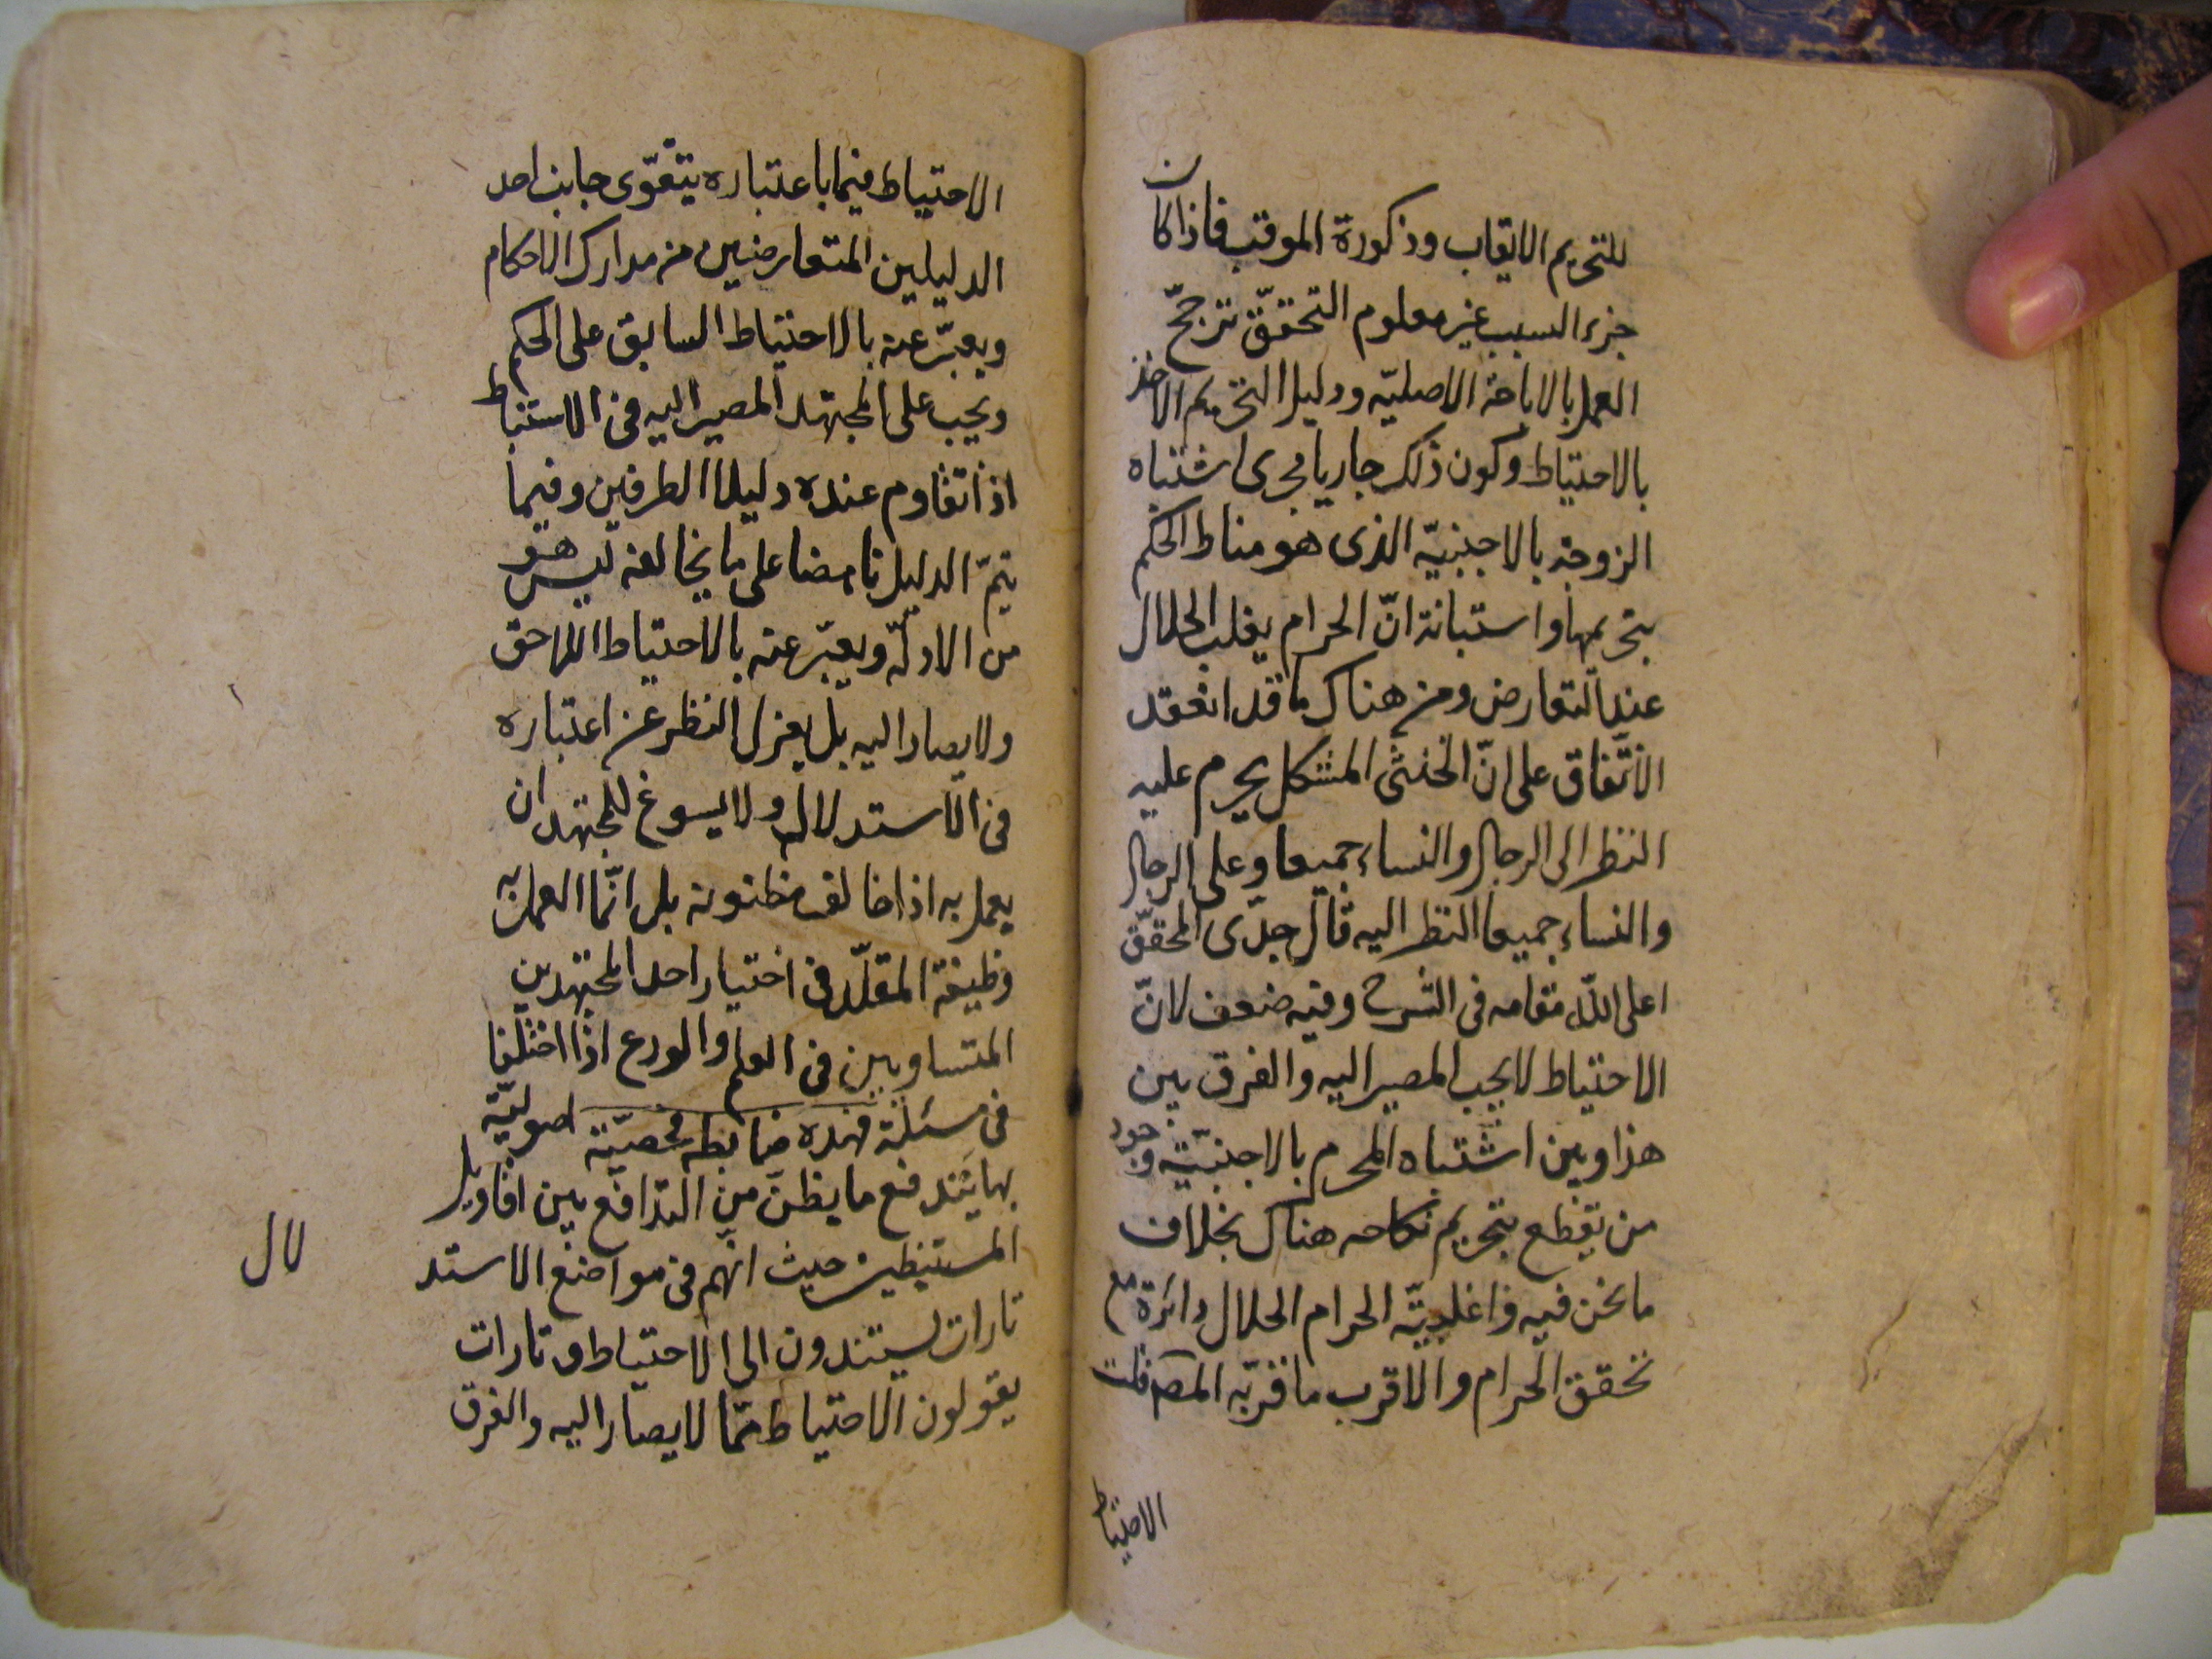 للتحريم الايقاب وذكورة الموقب فاذا كان
جزء السبب غير معلوم التحقّق ترجّح
العمل بالاباحة الاصليّه ودليل التحريم الاخذ
بالاحتياط وكون ذلك جاريا مجرى اشتباه
الزوجة بالاجنبيّه الذى هو مناط الحكم
بتحريمها واستبانة انّ الحرام يغلب الحلال
عند التعارض ومن هناك ما قد انعقد
الاتّفاق على انّ الخنثى المشكل يحرم عليه
النظر الى الرجال والنساء جميعا وعلى الرجال
والنساء جميعا النظر اليه قال جدّى المحقّق
اعلى اللّه مقامه فى الشرح وفيه ضعف لانّ
الاحتياط لا يجب المصير اليه والفرق بين
هذا وبين اشتباه المحرم بالاجنبيّة وجود
من يقطع بتحريم نكاحه هناك بخلاف
ما نحن فيه واغلبيّة الحرام الحلال دائرة مع
تحقق الحرام والاقرب ما قرّبه المصه قلت
الاحتياط
الاحتياط فيما باعتباره يتقوّى جانب احد
الدليلين المتعارضين من مدارك الاحكام
ويعبّر عنه بالاحتياط السابق على الحكم
ويجب على المجتهد المصير اليه فى الاستنباط
اذا تقاوم عنده دليلا الطرفين وفيما
يتمّ الدليل ناهضا على ما يخالفه ليس هو
من الادلّة ويعبّر عنه بالاحتياط اللاحق
ولا يصار اليه بل يعزل النظر عن اعتباره
فى الاستدلال ولا يسوغ للمجتهد ان
يعمل به اذا خالف مظنونه بل انّما العمل به
وظيفة المقلّد فى اختيار احد المجتهدين
المتساويين فى العلم والورع اذا اختلفا
فى مسئلة فهذه ضابطة محصّة اصوليّة
بها يندفع ما يظنّ من التدافع بين اقاويل
المستنبطين حيث انّهم فى مواضع الاستد
لال
تارات يستندون الى الاحتياط وتارات
يقولون الاحتياط ممّا لا يصار اليه والفرق